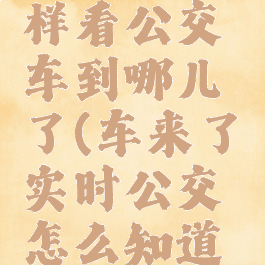 样看公交
车到哪儿
了(车来了
实时公交
怎么知道